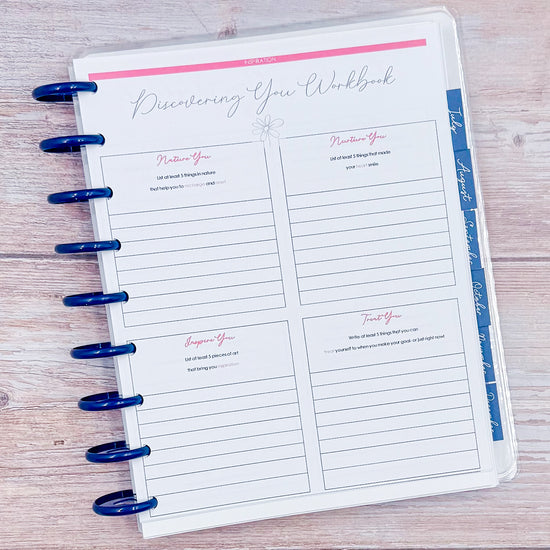 INSPIRATION
Discovering You Workbook
Nature You
List at least 5 things in nature
that help you to recharge and reset
Nurture You
List at least 5 things that made
your heart smile
Inspire You
List at least 5 pieces of art
That bring you inspiration
Treat You
Write at least 5 things that you can
treat yourself to when you make your goal- or just right now!
July
August
September
October
November
December